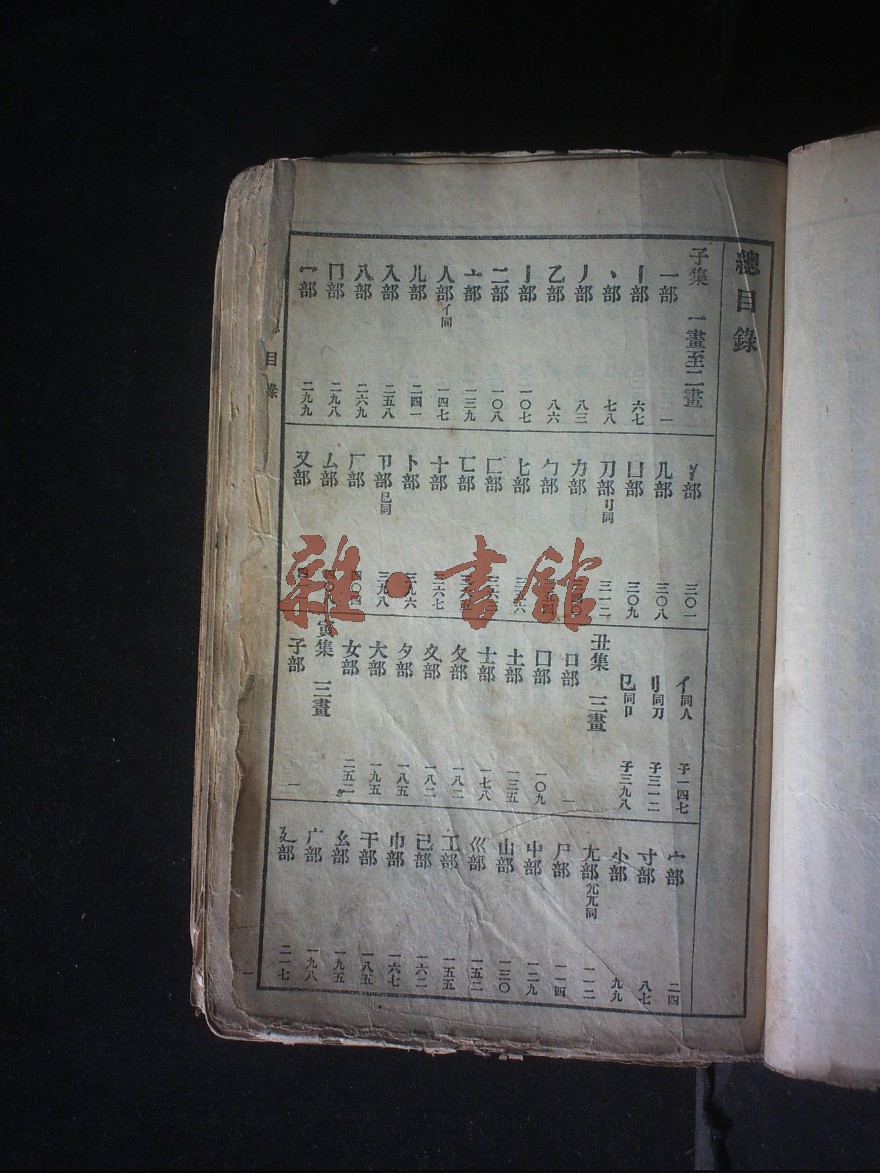 總目錄
子集 一畫至二畫
一部 一
丨部 六七
丶部 七八
丿部 八三
乙部 八六
亅部 一〇七
二部 一〇八
亠部 一三九
人部 亻同 一四七
儿部 二四一
入部 二五八
八部 二六九
冂部 二九八
冖部 二九九
冫部 三〇一
几部 三〇八
凵部 三〇九
刀部 刂同 三一二
力部
勹部
匕部
匚部
匸部
十部 三六七
卜部 三九六
卩部 㔾同 三九八
厂部
厶部
又部
亻同人 子一四七
刂同刀 子三一二
㔾同卩 子三九八
丑集 三畫
口部 一
囗部 一〇九
土部 一三五
士部 一七八
夂部 一八二
夊部 一八二
夕部 一八五
大部 一九五
女部 二五二
寅集 三畫
子部 一
宀部 二四
寸部 八七
小部 九九
尢部 尣兀同 一一二
尸部 一一四
屮部 一二九
山部 一三〇
巛部 一五二
工部 一五五
己部 一六二
巾部 一六七
干部 一八五
幺部 一九五
广部 一九八
廴部 二一七
目錄
一
雜·書館